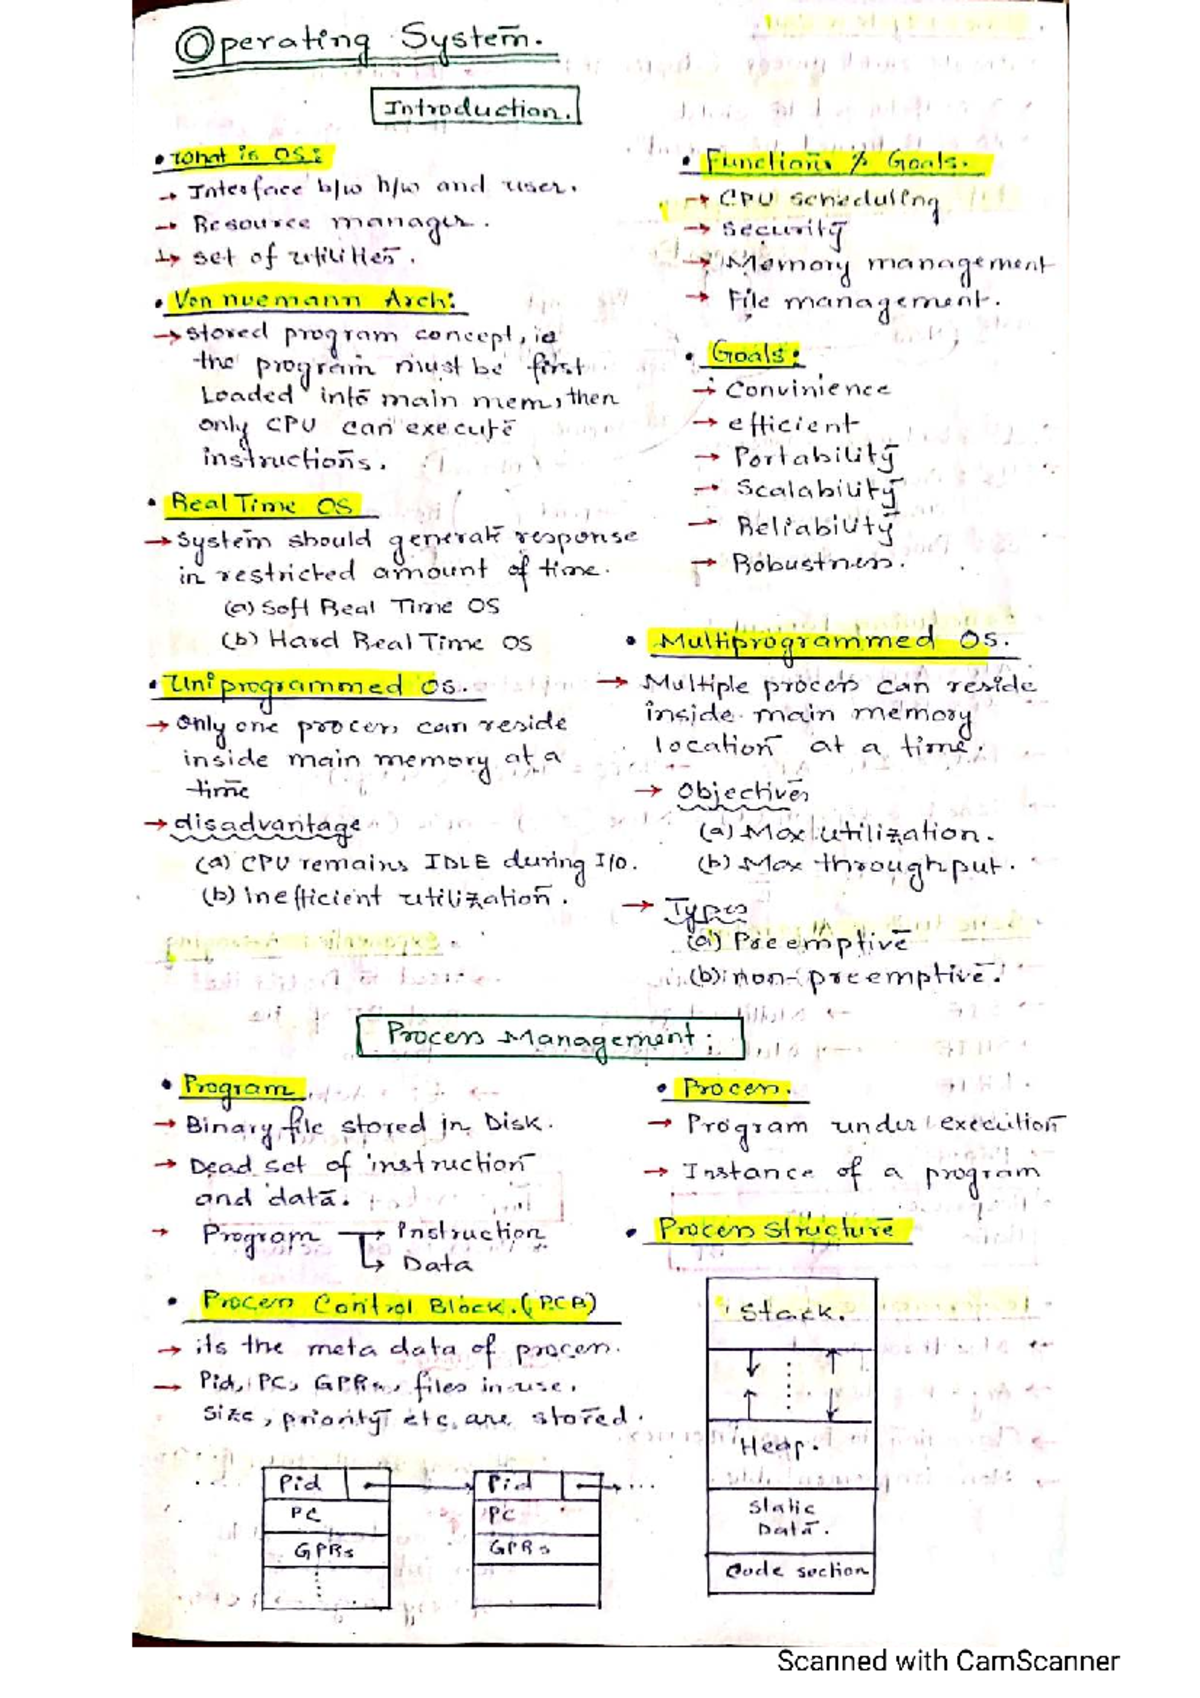 Operating System.
Introduction.
• What is OS:
→ Interface b/w h/w and user.
→ Resource manager.
→ set of utilities.
• Von nuemann Arch:
→ stored program concept, ie
the program must be first
Loaded into main mem, then
only CPU can execute
instructions.
• Real Time OS
→ System should generate response
in restricted amount of time.
(a) Soft Real Time OS
(b) Hard Real Time OS
• Uniprogrammed OS.
→ Only one process can reside
inside main memory at a
time
→ disadvantage
(a) CPU remains IDLE during I/O.
(b) Inefficient utilization.
• Functions & Goals.
→ CPU scheduling
→ Security
→ Memory management
→ File management.
• Goals:
→ Convinience
→ efficient
→ Portability
→ Scalability
→ Reliability
→ Robustness.
• Multiprogrammed OS.
→ Multiple process can reside
inside main memory
location at a time.
→ Objectives
(a) Max utilization.
(b) Max throughput.
→ Types
(a) Preemptive
(b) non-preemptive.
Process Management:
• Program
→ Binary file stored in Disk.
→ Dead set of instruction
and data.
→ Program → Instruction
↳ Data
• Process Control Block. (PCB)
→ its the meta data of process.
→ Pid, PC, GPRs, files in use,
size, priority etc, are stored.
Pid
PC
GPRs
Pid
PC
GPRs
• Process.
→ Program under execution
→ Instance of a program
• Process Structure
Stack.
Heap.
Static
Data.
Code section
Scanned with CamScanner